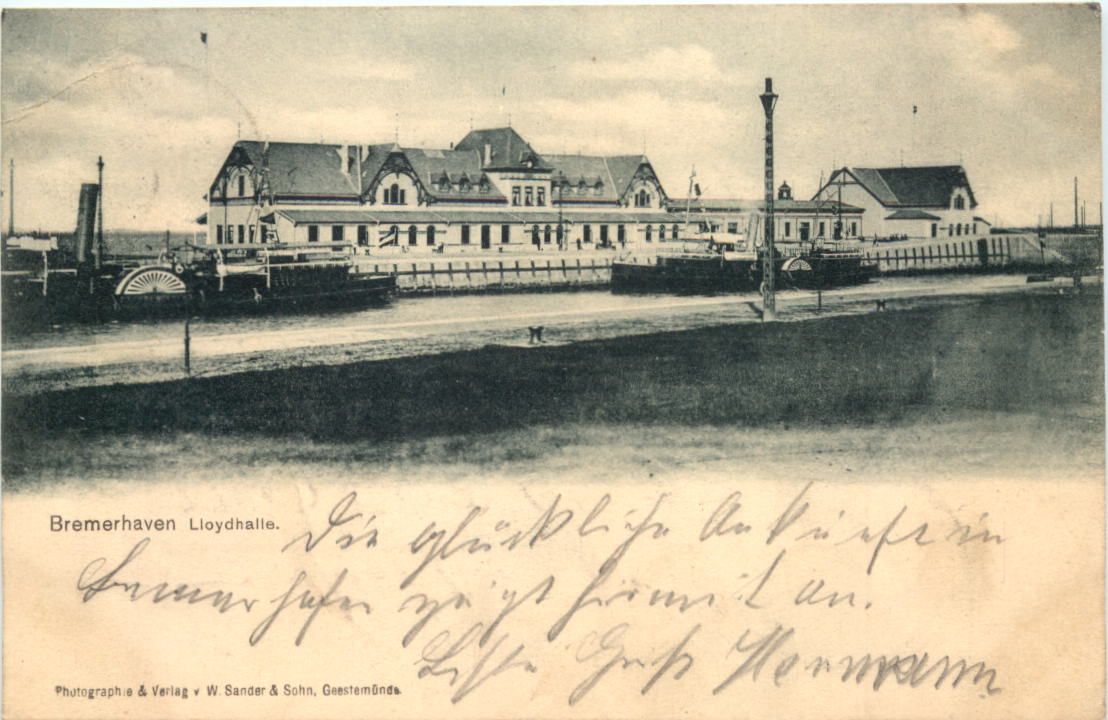 Bremerhaven Lloydhalle.
Die glückliche Ankunft in
Bremerhafen zeigt hiermit an.
Gruß Hermann
Photographie & Verlag v W. Sander & Sohn, Geestemünde.